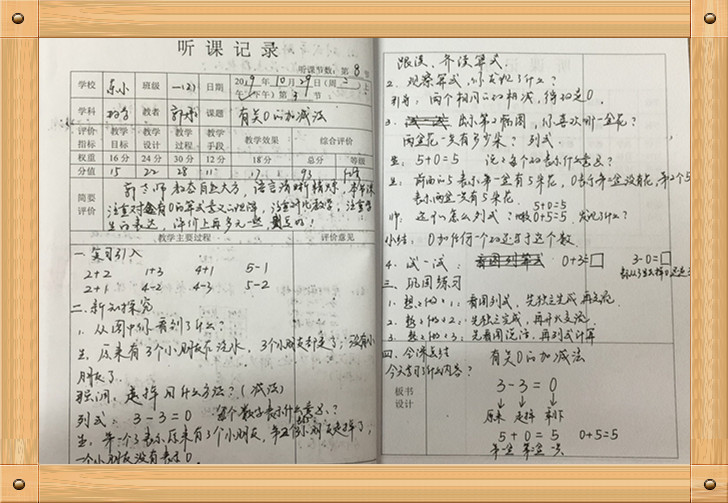 听课记录
听课节数：第 8 节
学校 东小 班级 一(2) 日期 2019年10月29日(周二)上
午(下午) 第3节
学科 数学 教者 课题 有关0的加减法
评价指标 教学目标 教学设计 教学过程 教学手段 教学效果 综合评价
权重 16分 24分 30分 12分 18分 总分 等级
分值 15 22 28 11 17 93
简要评价
老师教态自然大方，语言清晰精炼，本节课
注重对有0的算式意义的理解，注重
生的表达，评价上再多元一些，更好的！
教学主要过程 评价意见
一.复习引入
2+2 1+3 4+1 5-1
2+1 4-2 4-3 5-2
二.新知探究
1. 从图中你看到了什么？
生：原来有3个小朋友在浇水，3个小朋友都走了，没有小
朋友了。
强调：走掉用什么方法？(减法)
列式：3-3=0 每个数字表示什么意思？
生：第一个3表示原来有3个小朋友，第二个3 小朋友走掉了，
一个小朋友没有表示0。
跟读、齐读算式。
2. 观察算式，你发现了什么？
引导：两个相同的数相减，得数是0。
3. 出示第二幅图，你喜欢哪一盆花？
两盆花一共有多少朵？列式
生：5+0=5 说说每个数表示什么意思？
生：前面的5表示第一盆有5朵花，0表示第二盆没有花，第2个5
表示两盆一共有5朵花。
5+0=5
师：还可以怎么列式？ 0+5=5 发现了什么？
小结：0加任何一个数还等于这个数。
4. 试一试： 看图列算式 0+3=□ 3-0=□
三、巩固练习
1. 想想做做1：看图列式，先独立完成，再交流。
2. 想想做做2：先独立完成，再开火交流。
3. 想想做做3：先看图说说，再列式计算
四、全课总结
今天学习了什么内容？
板书设计
有关0的加减法
3-3=0
↓ ↓ ↓
原来 走掉 剩下
5+0=5 0+5=5
第一盆 第二盆 一共